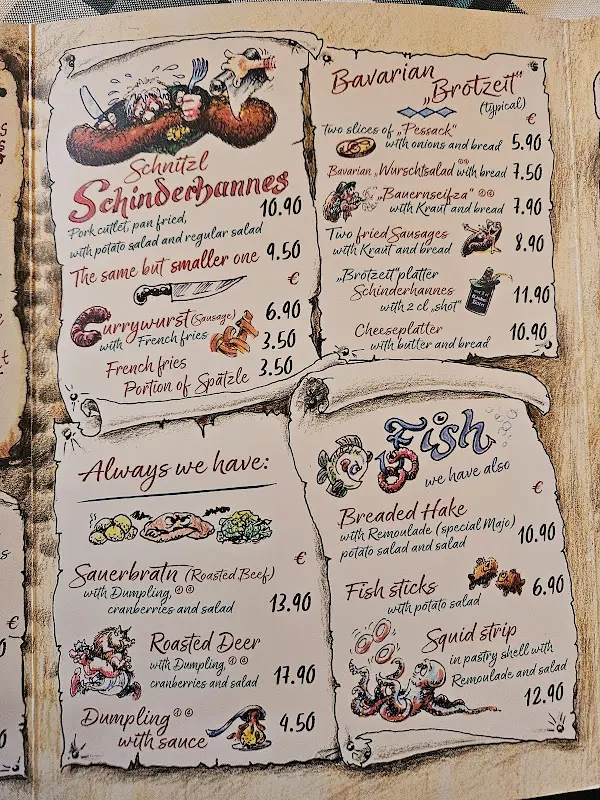 Schnitzl
Schinderhannes
Pork cutlet, pan fried, 10.90
with potato salad and regular salad
The same but smaller one 9.50
€
Currywurst (Sausage) 6.90
with French fries
3.50
French fries
Portion of Spätzle 3.50
Bavarian
„Brotzeit"
(typical)
€
Two slices of „Pessack"
with onions and bread 5.90
Bavarian „Wurschtsalad with bread 7.50
„Bauernseifza"
with Kraut and bread 7.90
Two fried Sausages
with Kraut and bread 8.90
„Brotzeit"platter
Schinderhannes 11.90
with 2 cl „shot"
Cheeseplatter 10.90
with butter and bread
Always we have:
€
Sauerbratn (Roasted Beef)
with Dumpling, 13.90
cranberries and salad
Roasted Deer
with Dumpling, 17.90
cranberries and salad
Dumpling 4.50
with sauce
Fish
we have also
€
Breaded Hake
with Remoulade (special Majo) 10.90
potato salad and salad
Fish sticks 6.90
with potato salad
Squid strip
in pastry shell with
Remoulade and salad
12.90